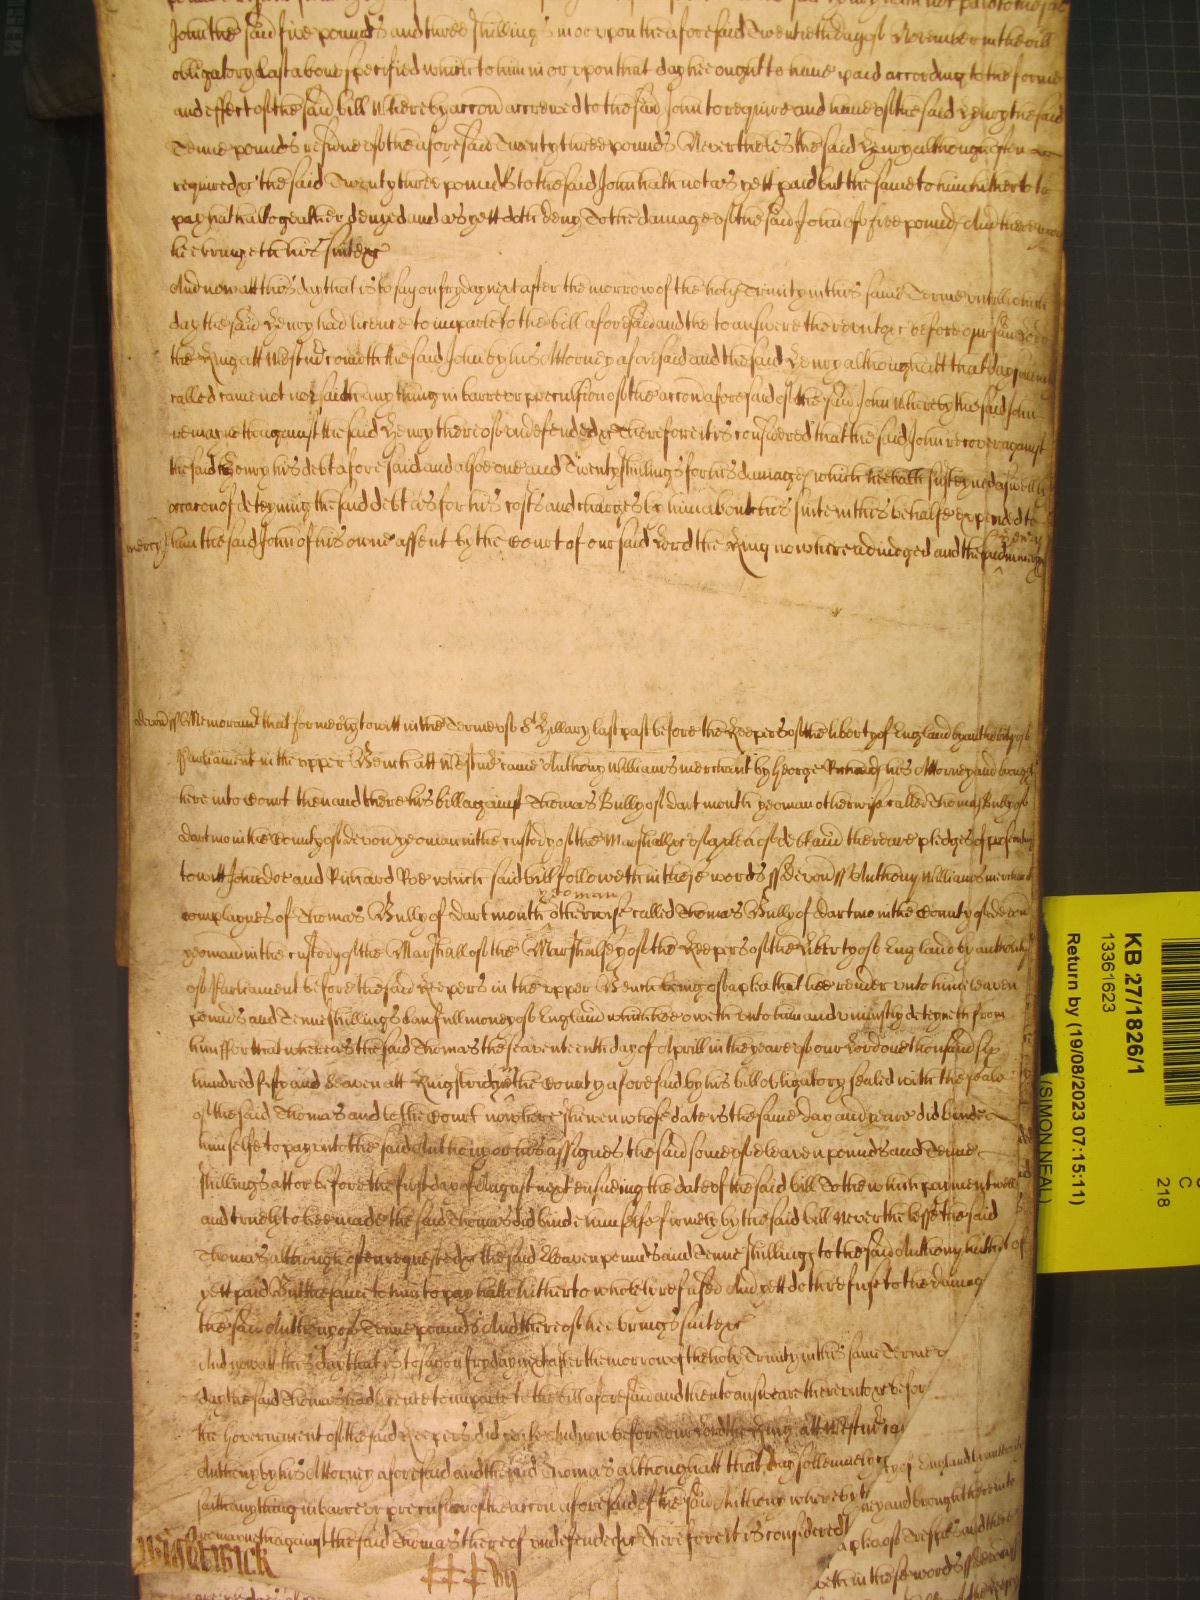 John the said five pounds and three shillings in or upon the aforesaid Twentieth day of November in the bill
obligatory last above specified which to him in or upon that day he ought to have paid according to the forme
and effect of the said bill Whereby accon accrewed to the said John to require and have of the said Henry the said
Tenne pounds residue of the aforesaid Twenty three pounds Neverthelesse the said Henry although often
required &c the said Twenty three pounds to the said John hath not as yett paid but the same to him hitherto to
pay hath altogeather denyed and as yett doth deny To the damage of the said John of five pounds And thereupon
he bringeth his suite &c
And now att this day that is to say on fryday next after the morrow of the holy Trinity in this same Terme untill which
day the said Henry had licence to imparle to the bill aforesaid and the to answere thereunto &c before our said Lord
the King att Westmr cometh the said John by his Attorney aforesaid and the said Henry although att that day solemnly
called came not nor saith any thing in barre or preclusion of the accon aforesaid of the said John Whereby the said John
remayneth against the said Henry thereof undefended &c Therefore it is considered that the said John recover against
the said Henry his debt aforesaid and alsoe one and Twenty shillings for his damages which he hath susteyned aswell by
occacon of deteyning the said debt as for his costs and charges by him about his suite in this behalfe expended to
mercy him the said John of his owne assent by the Court of our said Lord the King now here adiudged and the said Henry in mercy
devon ss Memorand that formerly to witt in the Terme of St Hillary last past before the Keepers of the liberty of England by authority of
Parliament in the upper Bench att Westmr came Anthony Williams merchant by George his Attorney and brought
here into Court then and there his bill against Thomas Bully of dartmouth yeoman otherwise called Thomas Bully of
dartmo in the County of devon yeoman in the custody of the Marshall &c of a plea of debt and there are pledges of prosecuting
to witt John doe and Richard Roe which said bill followeth in these words ss devon ss Anthony Williams merchant
complaynes of Thomas Bully of dartmouth yeoman otherwise called Thomas Bully of dartmo in the County of devon
yeoman in the custody of the Marshall of the Marshalsey of the Keepers of the Liberty of England by authority
of Parliament before the said Keepers in the upper Bench being of a plea that hee render unto him eleaven
pounds and Tenne shillings lawfull money of England which hee oweth unto him and uniustly deteyneth from
him ffor that whereas the said Thomas the seaventeenth day of Aprill in the yeare of our Lord one thousand six
hundred fifty and seaven att Kingsbridge in the County aforesaid by his bill obligatory sealed with the seale
of the said Thomas and to the Court now here shewen whose date is the same day and yeare did binde
himselfe to pay unto the said Anthony or his assignes the said some of eleaven pounds and Tenne
shillings att or before the first day of August next ensueing the date of the said bill To the which payment well
and truely to bee made the said Thomas did binde himselfe firmely by the said bill Neverthelesse the said
Thomas although often requested &c the said Eleaven pounds and Tenne shillings to the said Anthony hath not as
yett paid But the same to him to pay hath hitherto wholely refused And yett doth refuse to the damag
the said Anthony of Tenne pounds And thereof hee brings suite &c
And now att this day that is to say on fryday next after the morrow of the holy Trinity in this same Terme
day the said Thomas had licence to imparle to the bill aforesaid and then to answeare thereunto &c befor
the Government of the said Keepers did cease And now before our Lord the King att Westmr
Anthony by his Attorney aforesaid and the said Thomas although att that day sollemnely
saith any thing in barre or preclusion of the accon aforesaid of the said Anthony whereby
remayneth against the said Thomas thereof undefended &c Therefore it is considered
ty of England by authority
ney and brought here into
a plea of Trespas and there
weth in these words ss
Wightwick
KB 27/1826/1
13361623
Return by (19/08/2023 07:15:11)
(SIMON NEAL)
C
218